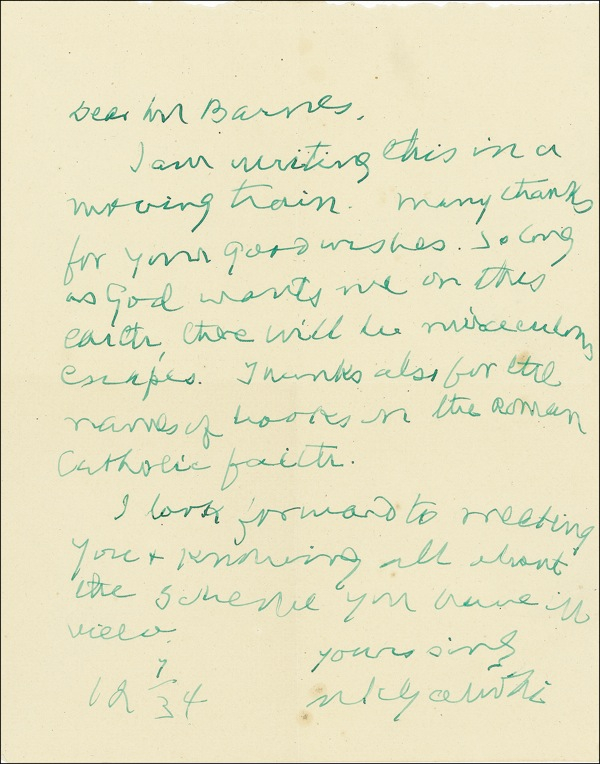 Dear Mr Barnes,
I am writing this in a
moving train. Many thanks
for your good wishes. So long
as God wants me on this
earth, there will be miraculous
escapes. Thanks also for the
names of books on the Roman
Catholic faith.
I look forward to meeting
you & knowing all about
the scheme you have in
view.
yours sincly
MKGandhi
12 7/34